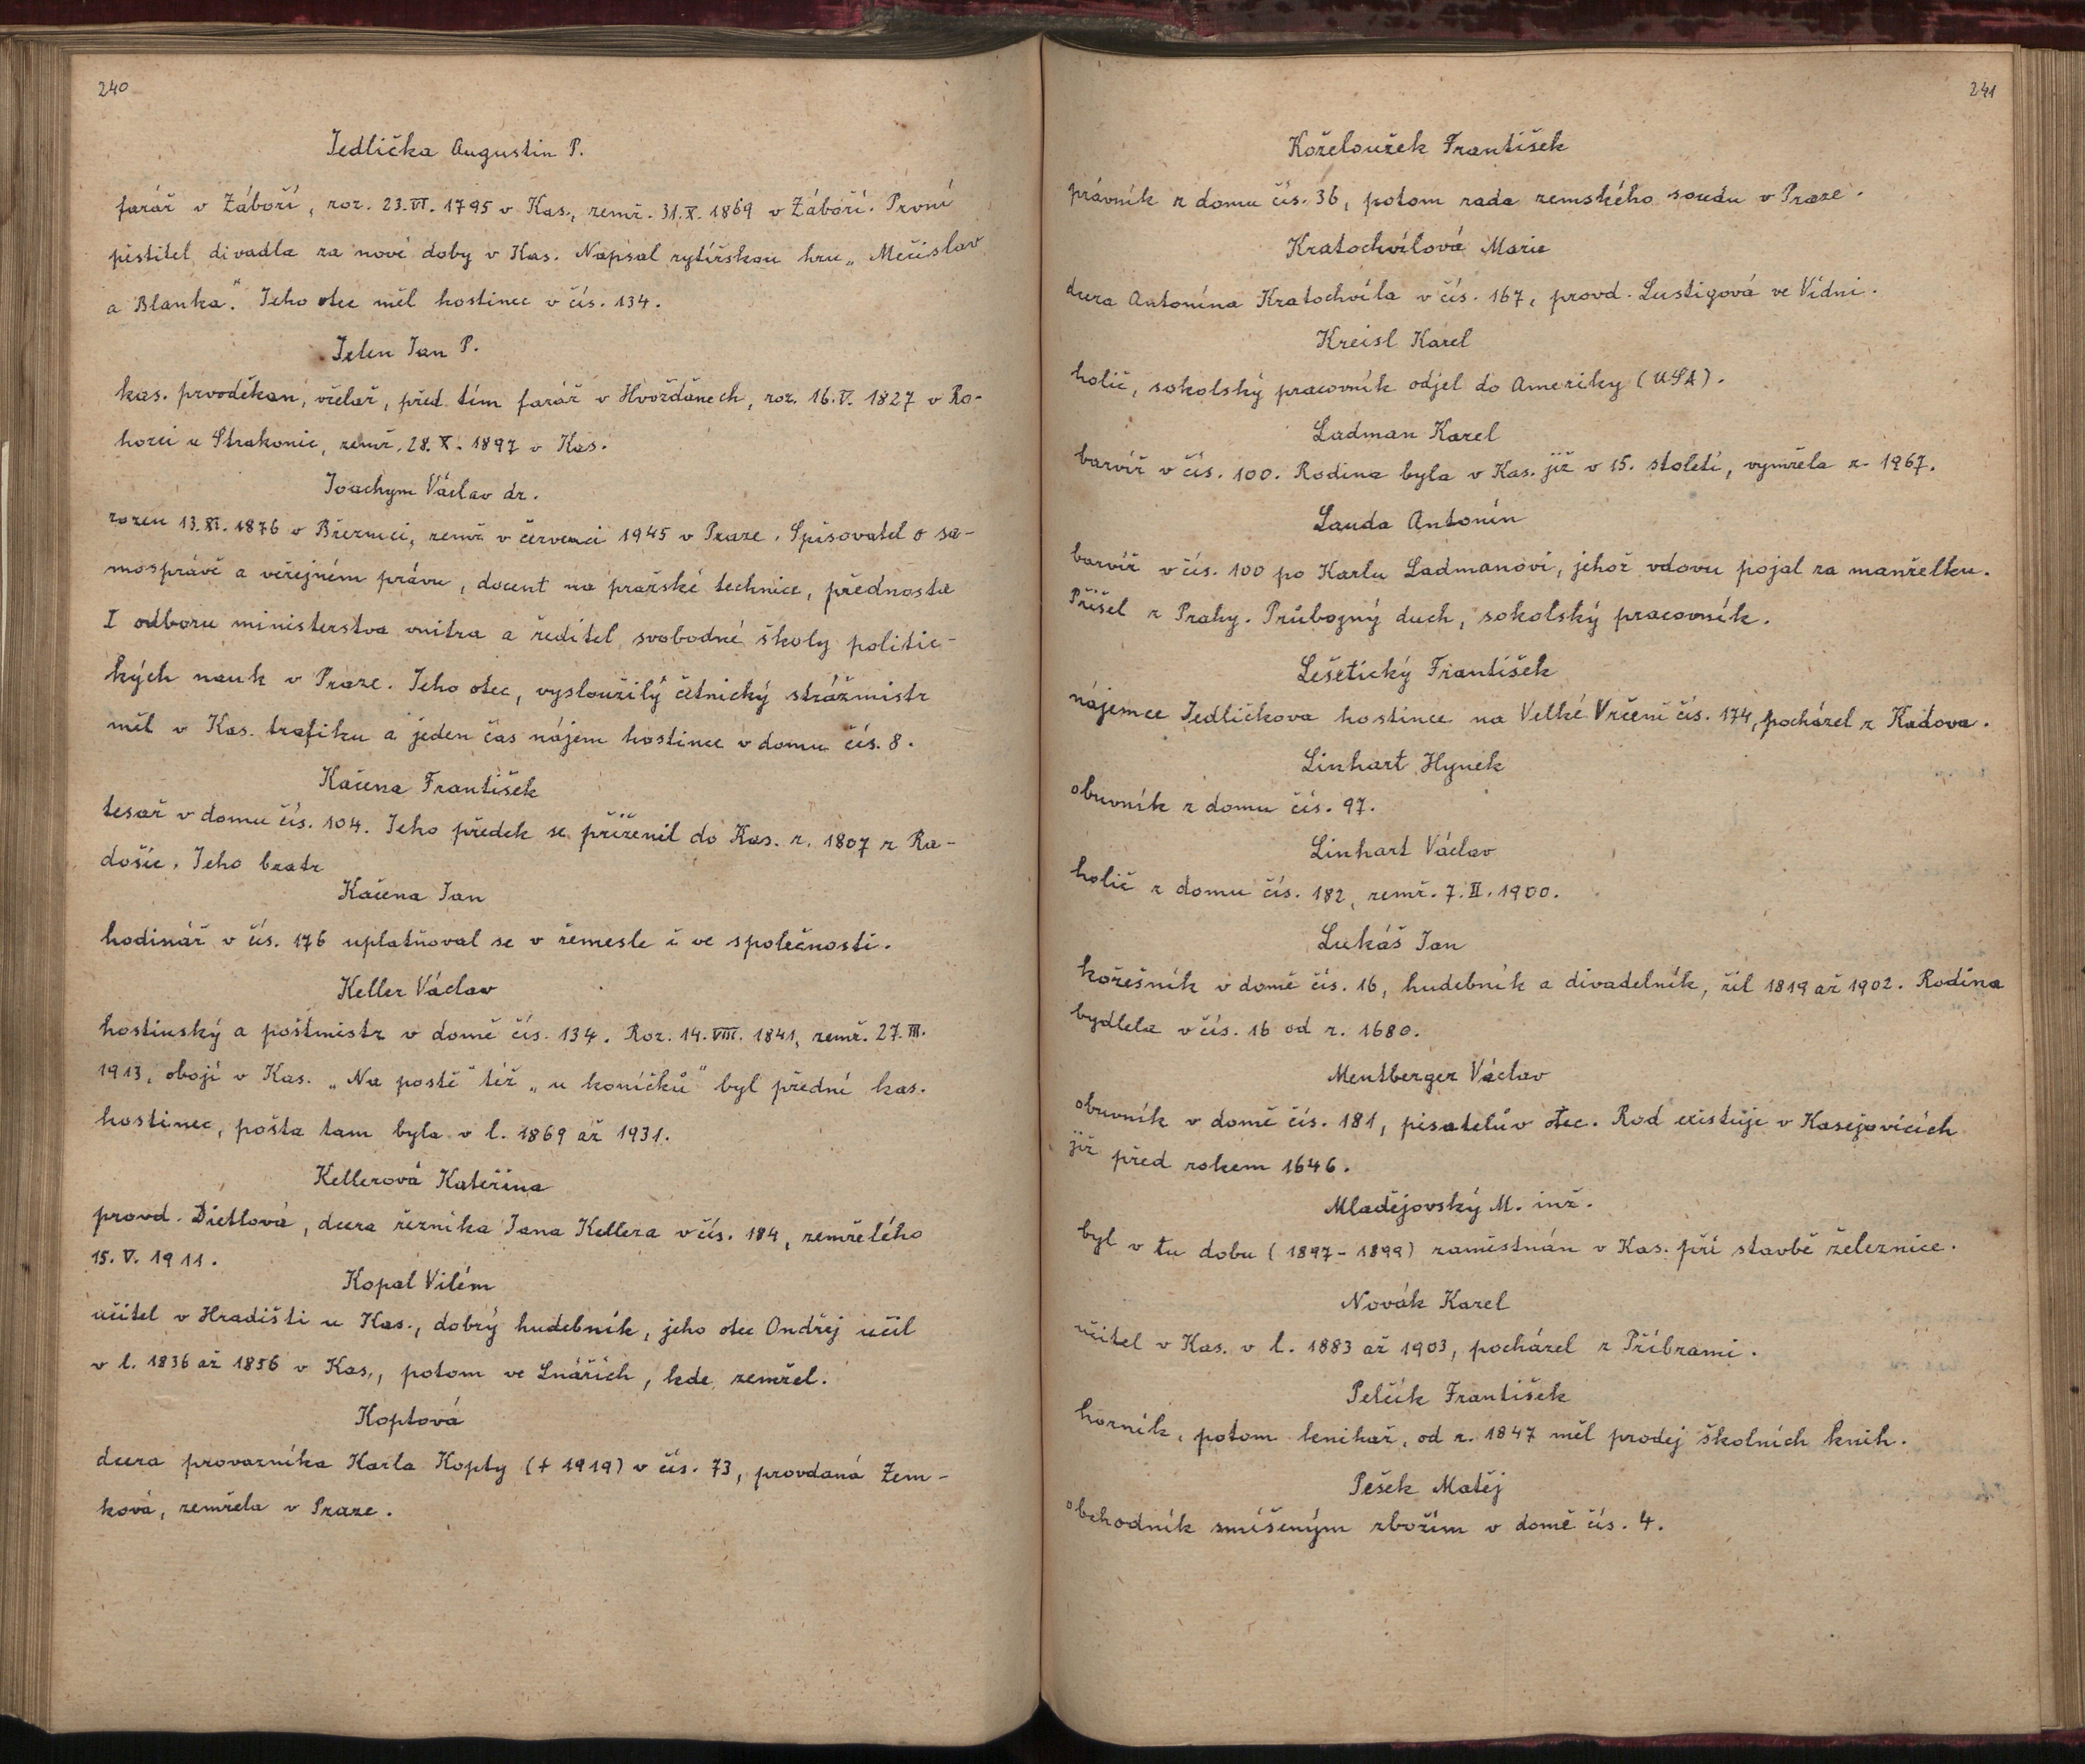 240
Jedlička Augustin P.
farář v Záboří, roz. 23.VI. 1795 v Kas., zemř. 31.X. 1869 v Záboří. První
pěstitel divadla za nové doby v Kas. Napsal rytířskou hru „Mečislav
a Blanka“. Jeho otec měl hostinec v čís. 134.
Jelen Jan P.
kas. prvoděkan, včelař, před tím farář v Hvožďanech, roz. 16.V. 1827 v Ro-
hozci u Strakonic, zemř. 28.X. 1897 v Kas.
Joachym Václav dr.
rozen 13.XI. 1876 v Březnici, zemř. v červenci 1945 v Praze. Spisovatel o sa-
mosprávě a veřejném právu, docent na pražské technice, přednosta
I odboru ministerstva vnitra a ředitel svobodné školy politic-
kých nauk v Praze. Jeho otec, vysloužilý četnický strážmistr
měl v Kas. trafiku a jeden čas nájem hostince v domu čís. 8.
Kačena František
tesař v domu čís. 104. Jeho předek se přiženil do Kas. r. 1807 z Ra-
došic. Jeho bratr
Kačena Jan
hodinář v čís. 176 uplatňoval se v řemesle i ve společnosti.
Keller Václav
hostinský a poštmistr v domě čís. 134. Roz. 14.VIII. 1841, zemř. 27.III.
1913, obojí v Kas. „Na poště“ též „u koníčků“ byl přední kas.
hostinec, pošta tam byla v l. 1869 až 1931.
Kellerová Kateřina
provd. Dietlová, dcera řezníka Jana Kellera v čís. 184, zemřelého
15.V. 1911.
Kopal Vilém
učitel v Hradišti u Kas., dobrý hudebník, jeho otec Ondřej učil
v l. 1836 až 1856 v Kas., potom ve Lnářích, kde zemřel.
Koptová
dcera provazníka Karla Kopty († 1919) v čís. 73, provdaná Zem-
ková, zemřela v Praze.
241
Koželoužek František
právník z domu čís. 36, potom rada zemského soudu v Praze.
Kratochvílová Marie
dcera Antonína Kratochvíla v čís. 167, provd. Lustigová ve Vídni.
Kreisl Karel
holič, sokolský pracovník odjel do Ameriky (USA).
Ladman Karel
barvíř v čís. 100. Rodina byla v Kas. již v 15. století, vymřela r. 1967.
Lauda Antonín
barvíř v čís. 100 po Karlu Ladmanovi, jehož vdovu pojal za manželku.
Přišel z Prahy. Průbojný duch, sokolský pracovník.
Lešetický František
nájemce Jedličkova hostince na Velké Vrčeni čís. 174, pocházel z Kadova.
Linhart Hynek
obuvník z domu čís. 97.
Linhart Václav
holič z domu čís. 182, zemř. 7.II. 1900.
Lukáš Jan
kožešník v domě čís. 16, hudebník a divadelník, žil 1819 až 1902. Rodina
bydlela v čís. 16 od r. 1680.
Mentberger Václav
obuvník v domě čís. 181, pisatelův otec. Rod existuje v Kasejovicích
již před rokem 1646.
Mladějovský M. inž.
byl v tu dobu (1897-1899) zaměstnán v Kas. při stavbě železnice.
Novák Karel
učitel v Kas. v l. 1883 až 1903, pocházel z Příbrami.
Pelčík František
horník, potom knihař, od r. 1847 měl prodej školních knih.
Pešek Matěj
obchodník smíšeným zbožím v domě čís. 4.